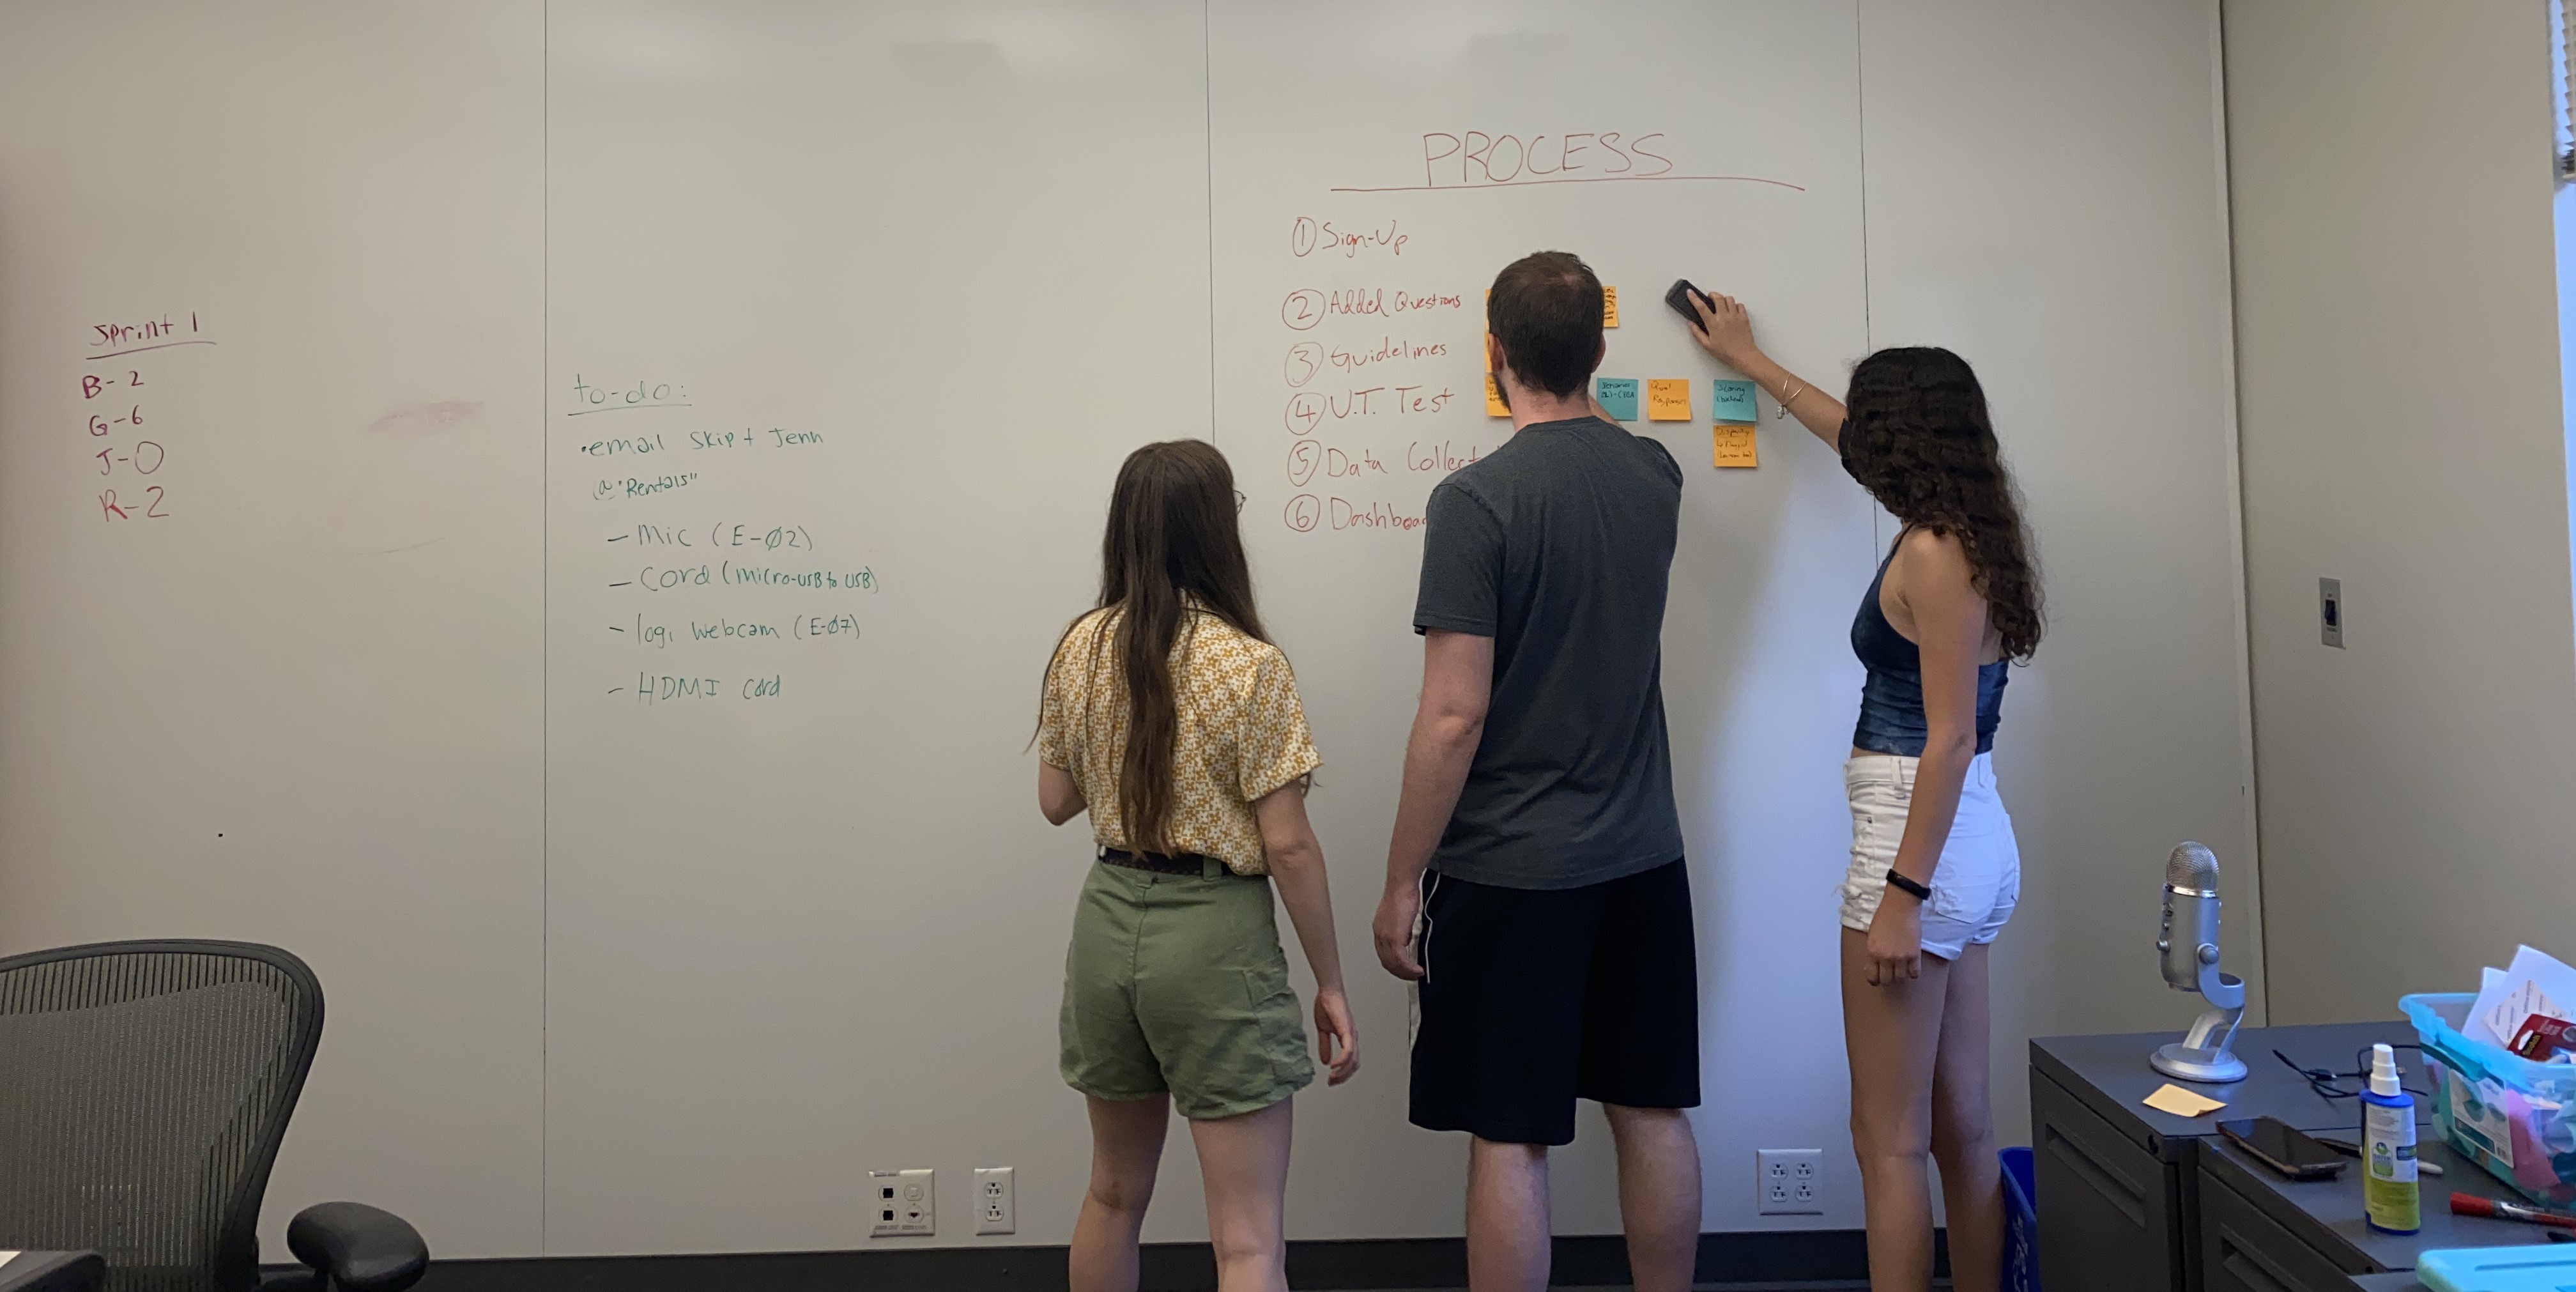 Sprint 1
B-2
G-6
J-0
R-2
to-do:
•email Skip + Jenn
@ "Rentals"
- Mic (E-Ø2)
- Cord (micro-USB to USB)
- logi webcam (E-Ø7)
- HDMI cord
PROCESS
① Sign-Up
② Added Questions
③ Guidelines
④ U.T. Test
⑤ Data Collect
⑥ Dashboar
Qual
Scoring
(backend)